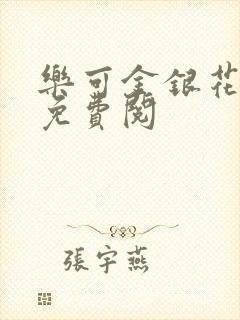 樂可金銀花
免費閱
張宇燕